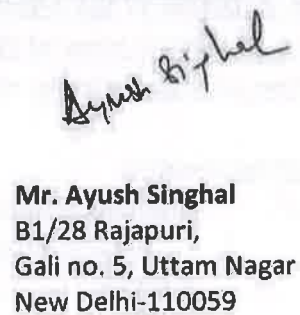 Ayush Singhal
Mr. Ayush Singhal
B1/28 Rajapuri,
Gali no. 5, Uttam Nagar
New Delhi-110059